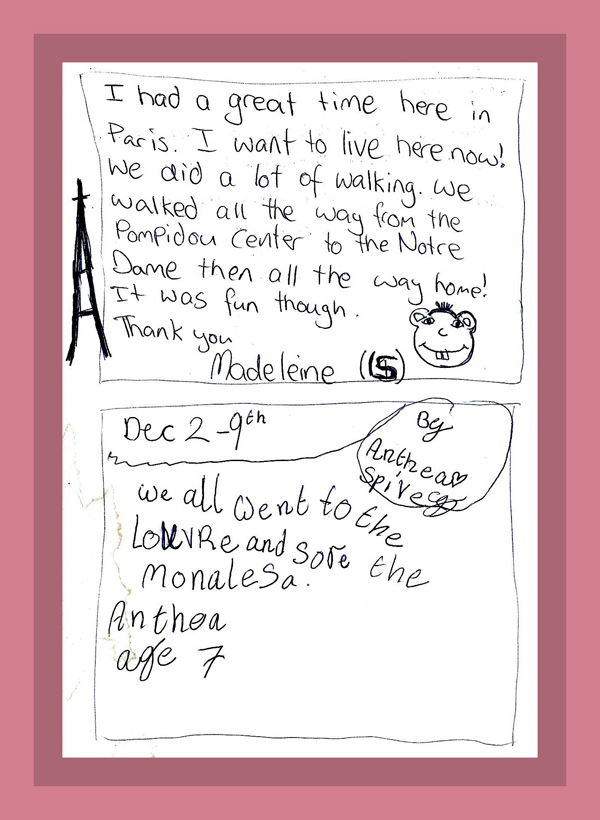 I had a great time here in
Paris. I want to live here now!
We did a lot of walking. We
walked all the way from the
Pompidou Center to the Notre
Dame then all the way home!
It was fun though.
Thank you
Madeleine
Dec 2-9th
By
Anthea
we all went to the
LOUVRe and sore the
monalesa.
Anthea
age 7